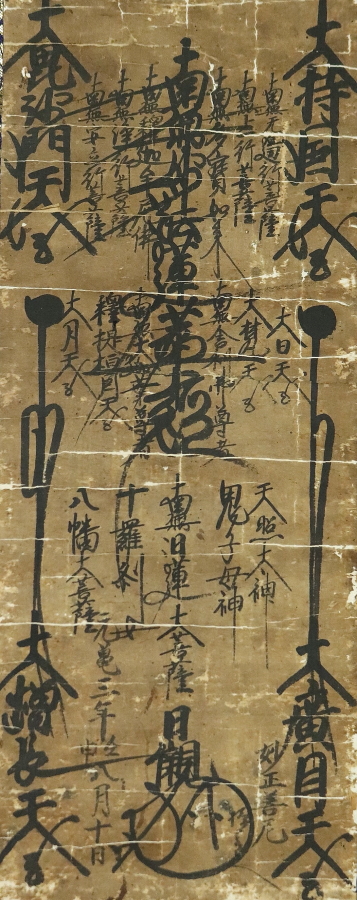 大持国天王
南無上行菩薩
南無多寶如来
南無妙法蓮華経
南無浄行菩薩
南無安立行菩薩
大毘沙門天王
大日天王
大梵天王
南無舎利弗尊者
釋提桓因天王
大月天王
天照大神
鬼子母神
南無日蓮大菩薩
十羅刹女
八幡大菩薩
大廣目天王
妙正善尼
日
元亀三年
八月十日
大増長天王